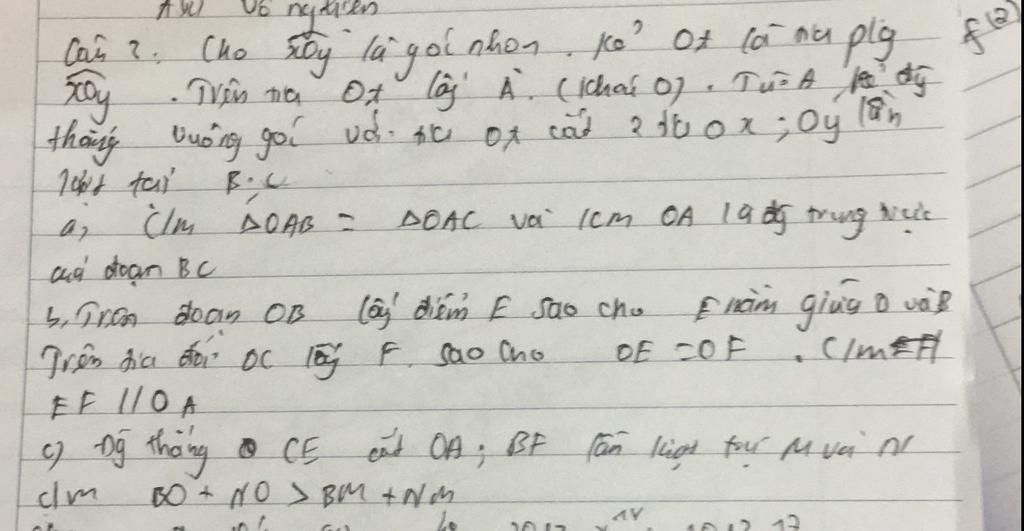 vô nghiệm
Câu 2. Cho xOy là góc nhọn. Kẻ Ot là tia p/g
xOy. Trên tia Ot lấy A. (khác O). Từ A kẻ đg
thẳng vuông góc với tia Ot cắt 2 tia Ox; Oy lần
lượt tại B; C
a, C/m ΔOAB = ΔOAC và OA là đg trung trực
của đoạn BC
b, Trên đoạn OB lấy điểm E sao cho E nằm giữa O và B
Trên tia đối OC lấy F sao cho OE = OF. C/m
EF // OA
c) Đg thẳng CE cắt OA; BF lần lượt tại M và N
c/m BO + NO > BM + NM